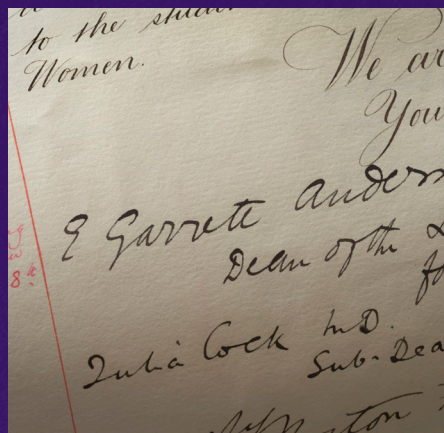 to the stude
Women.
We ar
You
E Garrett Anders
Dean of the L
fo
Julia Cock M.D.
Sub-Dea
8th